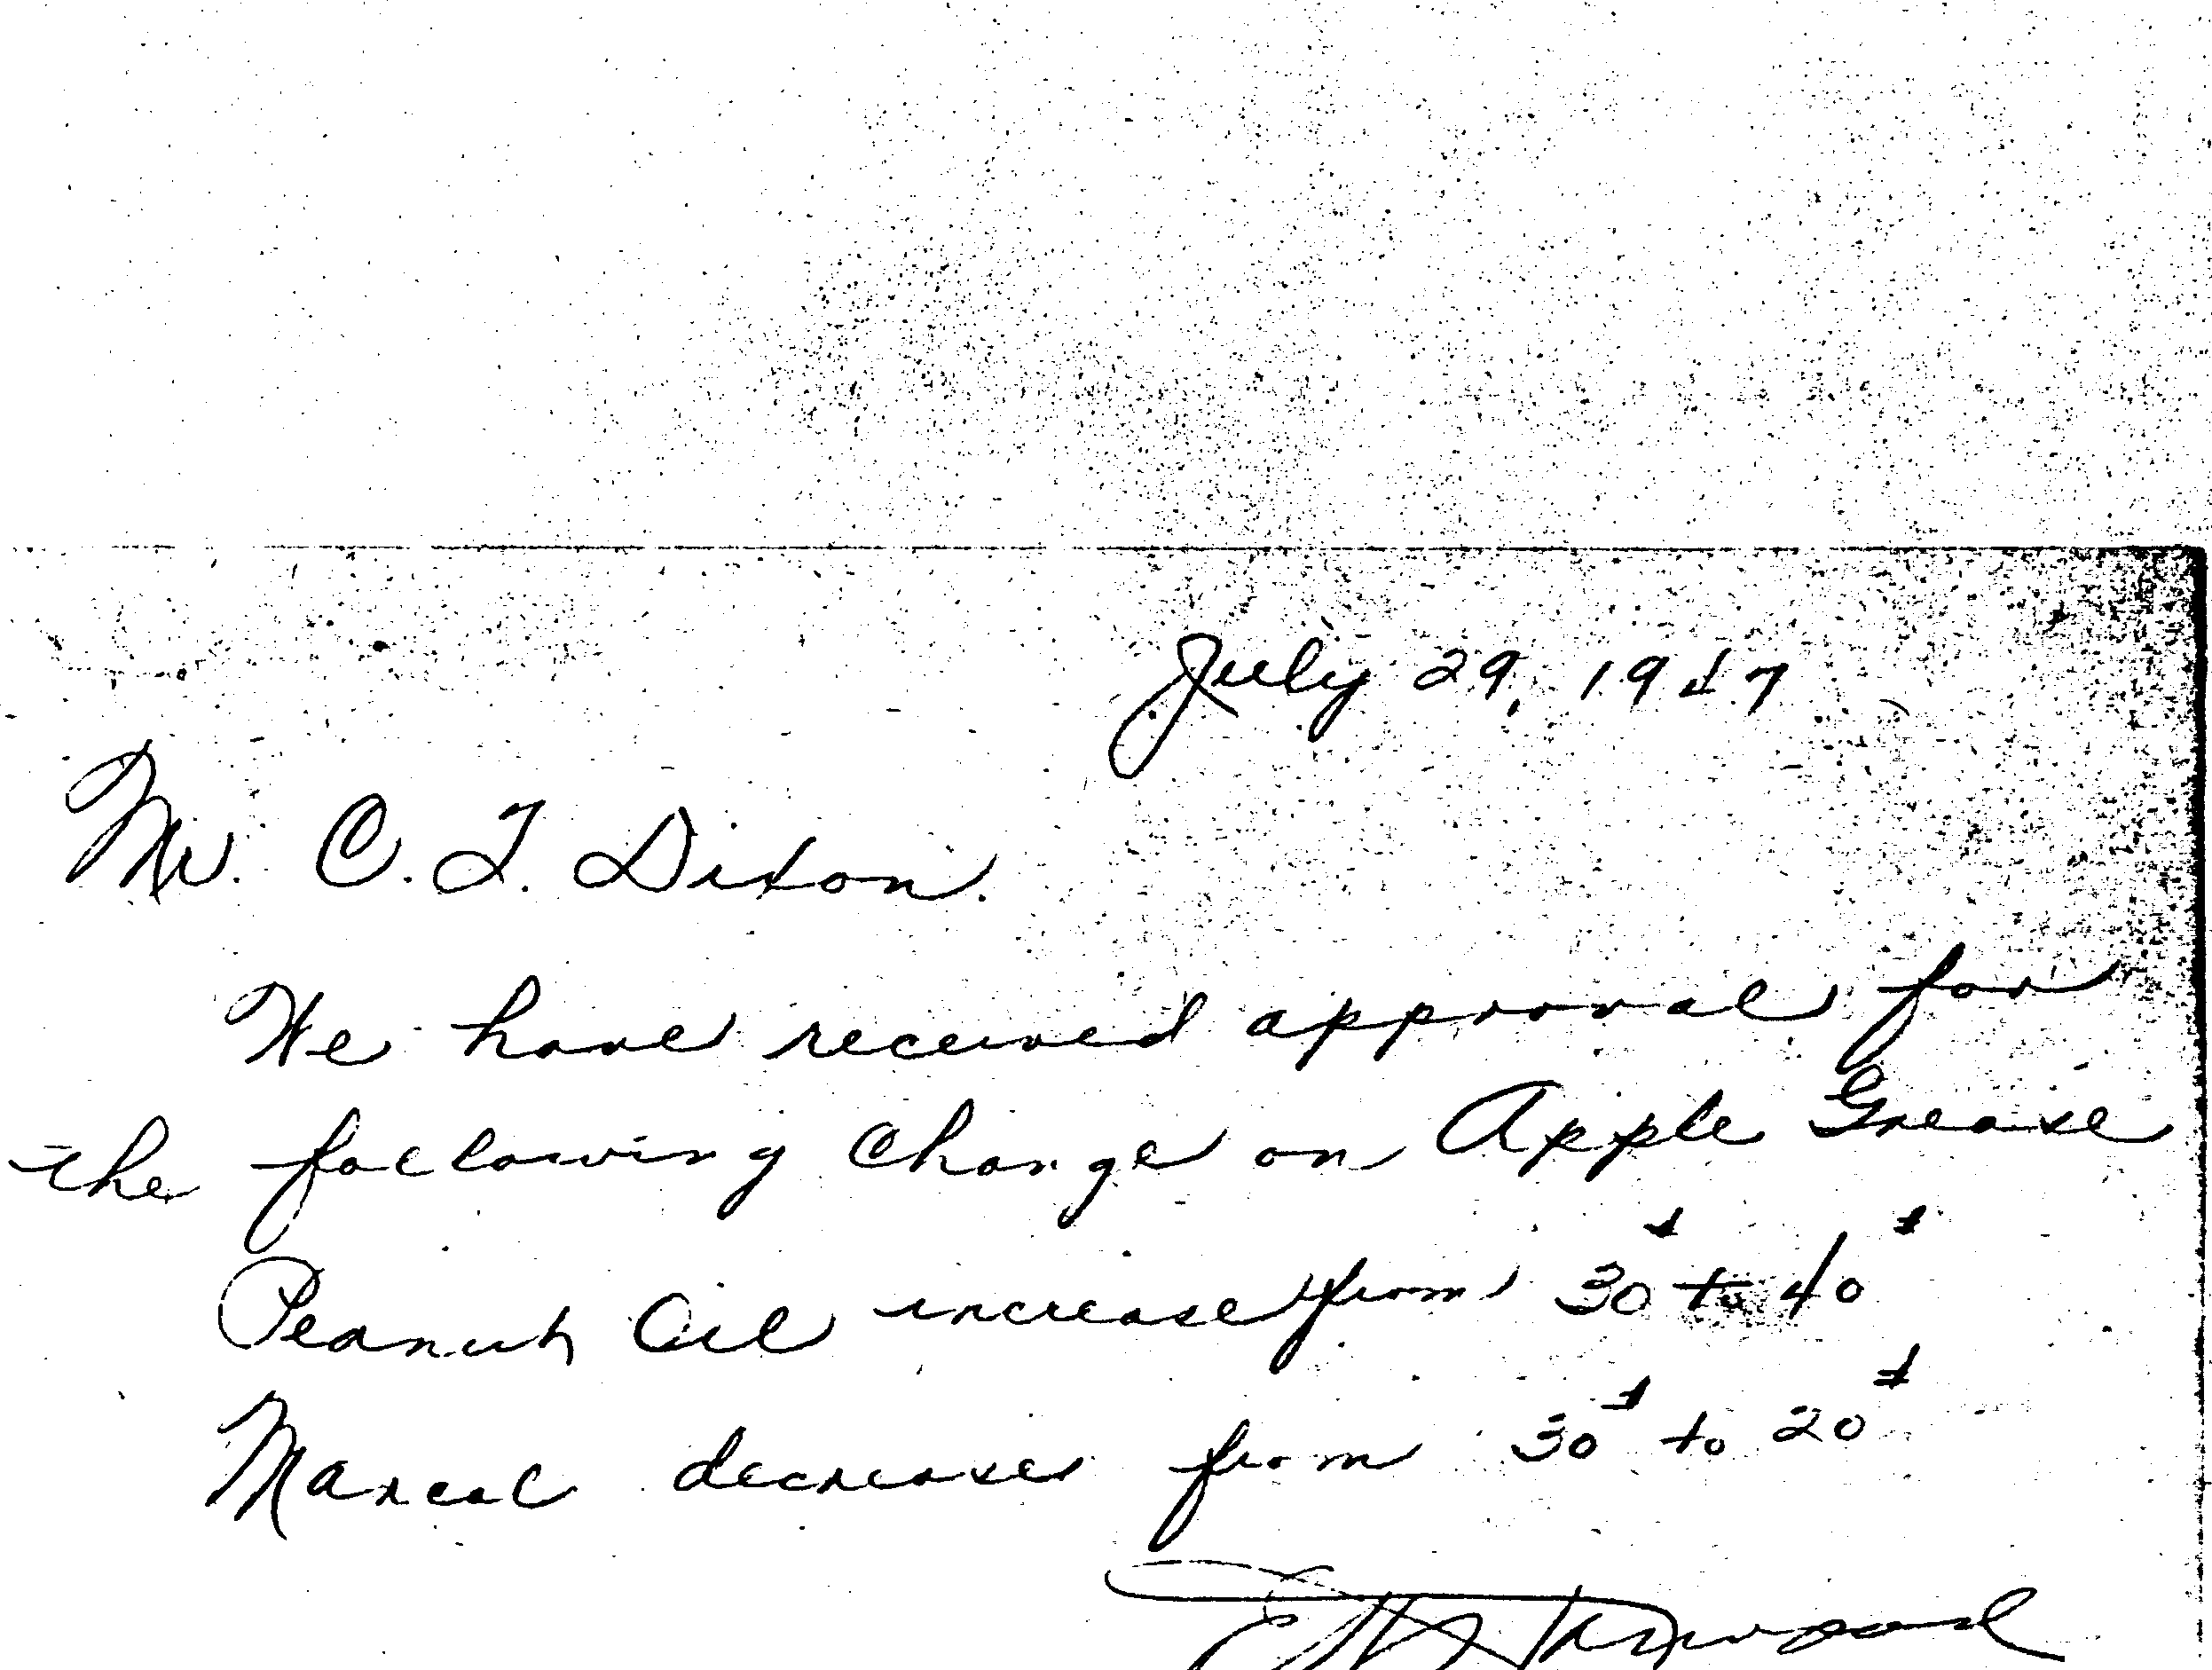 July 29, 1947
Mr. C. T. Dixon.
We have received approval for
the following change on Apple Grease
Peanut Oil increase from 30# to 40#
Marcol decrease from 30# to 20#